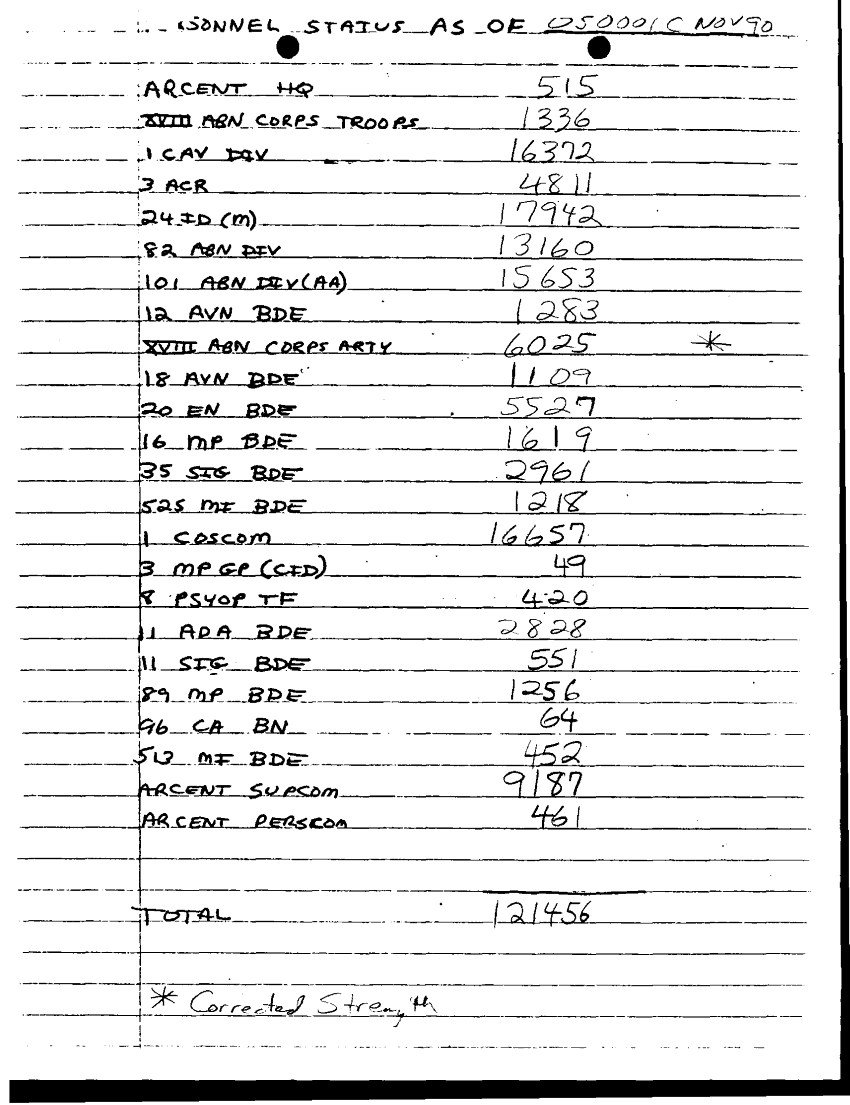 SONNEL STATUS AS OF 050001C NOV 90
ARCENT HQ 515
XVIII ABN CORPS TROOPS 1336
1 CAV DIV 16372
3 ACR 4811
24 ID (M) 17942
82 ABN DIV 13160
101 ABN DIV (AA) 15653
12 AVN BDE 1283
XVIII ABN CORPS ARTY 6025 *
18 AVN BDE 1109
20 EN BDE 5527
16 MP BDE 1619
35 SIG BDE 2961
525 MI BDE 1218
1 COSCOM 16657
3 MP GP (CID) 49
8 PSYOP TF 420
11 ADA BDE 2828
11 SIG BDE 551
89 MP BDE 1256
96 CA BN 64
513 MI BDE 452
ARCENT SUPCOM 9187
ARCENT PERSCOM 461
TOTAL 121456
* Corrected Strength